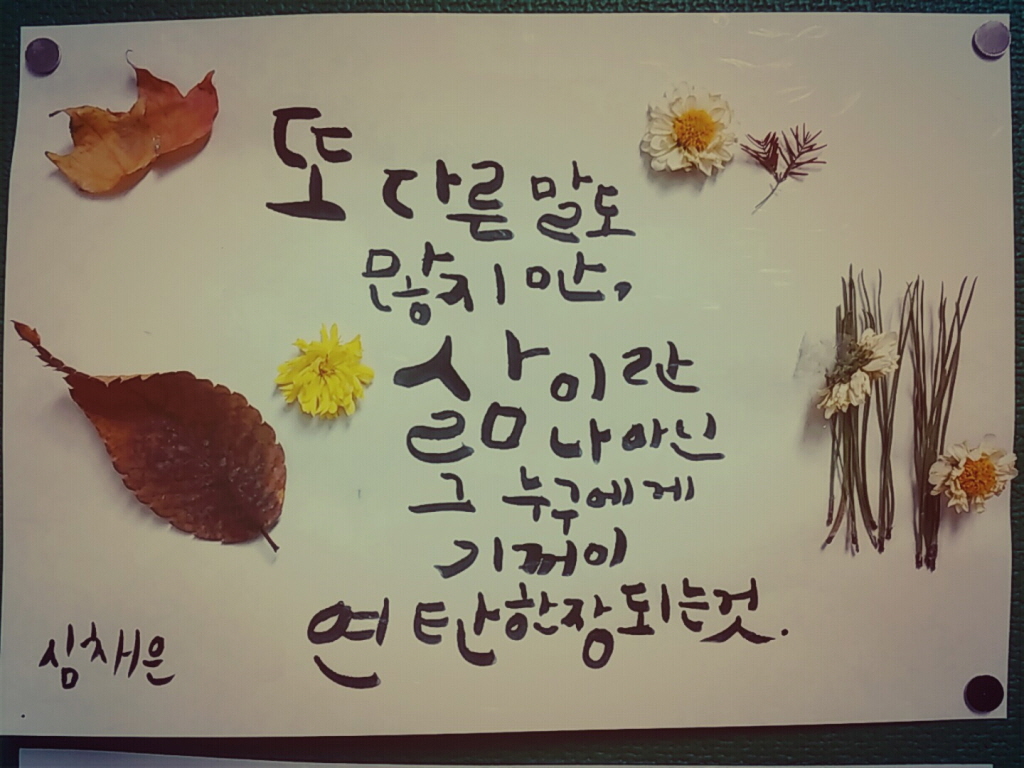 또 다른 말도
많지만,
삶이란
나 아닌
그 누구에게
기꺼이
연탄 한 장 되는 것.
심채은